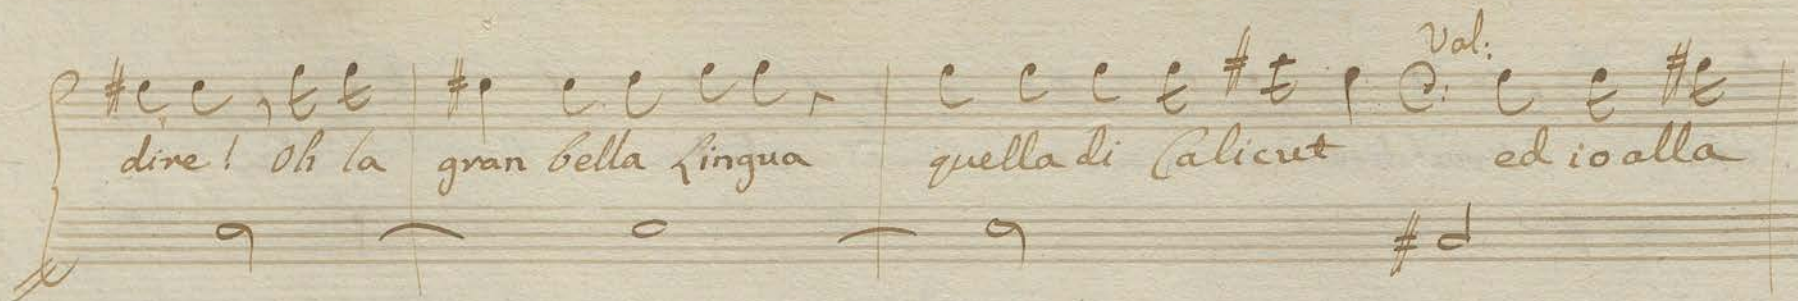 Val:
dire! Oh la gran bella Lingua quella di Calicut ed io alla